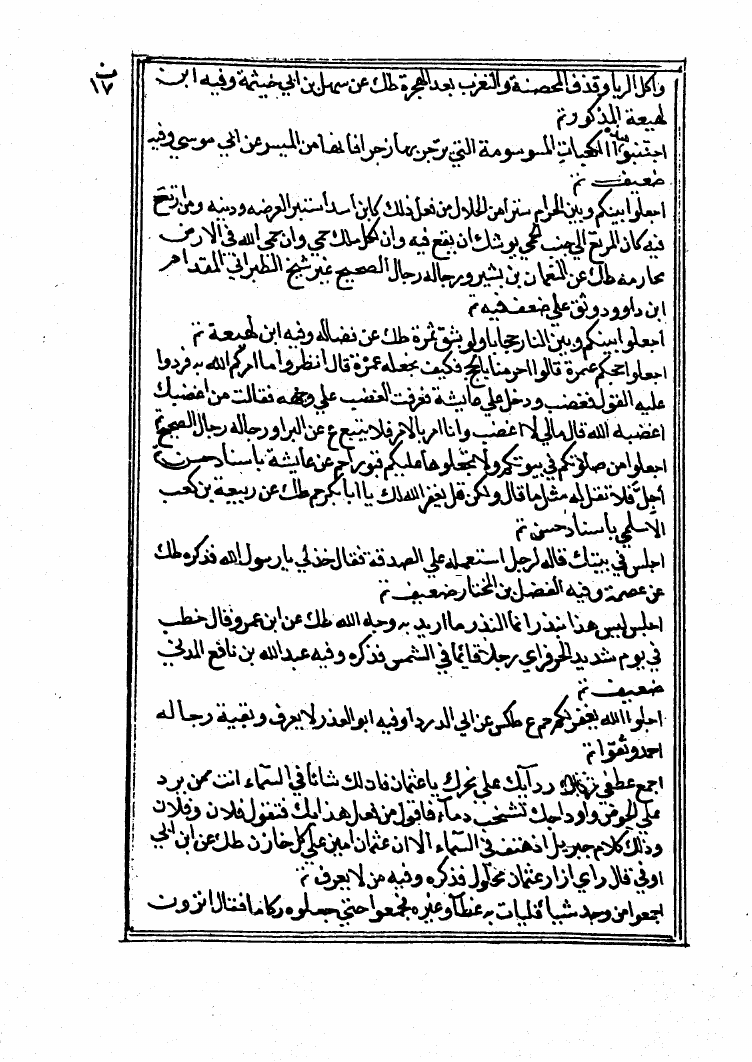 ن ١٧
واكل الربا وقذف المحصنة والتعرب بعد الهجرة طك عن سهل بن ابي خيثمة وفيه ابن
لهيعة المذكور تم
اجتنبوا هذه الكعبات الموسومة التي يزجر بها زجرا فانها من الميسر عن ابي موسي وفيه
ضعيف تم
اجعلوا بينكم وبين الحرام سترا من الحلال من فعل ذلك كان اشد استبرا لعرضه ودينه ومن ارتع
فيه كان المرتع الي جنب الحمي يوشك ان يقع فيه وان لكل ملك حمي وان حمي الله في الارض
محارمه طك عن النعمان بن بشير ورجاله رجال الصحيح غير شيخ الطبراني المقدام
ابن داوود وثق علي ضعف فيه تم
اجعلوا بينكم وبين النار حجابا ولو بشق تمرة طك عن فضاله وفيه ابن لهيعة تم
اجعلوا حجكم عمرة قالوا احرمنا بالحج فكيف نجعله عمرة قال انظروا ما امركم الله به فردوا
عليه القول فغضب ودخل علي عايشة فعرفت الغضب علي وجهه فقالت من اغضبك
اغضبه الله قال مالي لا اغضب وانا امر بالامر فلا يتبع ع عن البرا ورجاله رجال الصحيح تم
اجعلوا من صلاتكم في بيوتكم ولا تجعلوها عليكم قبورا حم عن عايشة باسناد حسن تم
اجل فلا تقل له مثل ما قال ولكن قل يغفر الله لك يا ابا بكر حم طك عن ربيعة بن كعب
الاسلمي باسناد حسن تم
اجلس في بيتك قاله لرجل استعمله علي الصدقة فقال خذ لي يا رسول الله فذكره طك
عن عصمة وفيه الفضل بن المختار ضعيف تم
اجلس ليس هذا بنذر انما النذر ما اريد به وجه الله طك عن ابن عمرو قال خطب
في يوم شديد الحر فراي رجلا قائما في الشمس فذكره وفيه عبدالله بن نافع المدني
ضعيف تم
اجلوا الله يغفر لكم حم ع طكس عن ابي الدرداء وفيه ابو العذر لا يعرف وبقية رجاله
احمد وثقوا تم
اجمع عطفي ردآيك علي نحرك يا عثمان فان لك شانا في السماء انت ممن يرد
علي الحوض واوداجك تشخب دماء فاقول من فعل هذا بك فتقول فلان وفلان
وذلك كلام جبريل اذ هتف في السماء الا ان عثمان امين علي كل خاذل طك عن ابن ابي
اوفي قال راي ازار عثمان محلول فذكره وفيه من لا يعرف تم
اجمعوا من وجد شيئا فليات به عظما وغيره فجمعوا حتي جعلوه ركاما فقال اترون